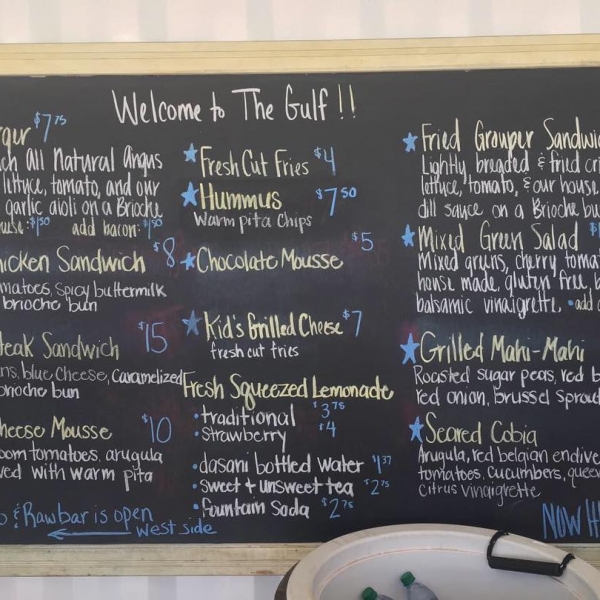 Welcome to The Gulf!!
$7.75
All Natural Angus
lettuce, tomato, and our
garlic aioli on a Brioche
$1.50 add bacon: $1.50
Sandwich $8
spicy buttermilk
brioche bun
Sandwich $15
blue cheese, caramelized
brioche bun
Cheese Mousse $10
tomatoes, arugula
with warm pita
& Rawbar is open
west side
Fresh Cut Fries $4
Hummus $7.50
warm pita chips
Chocolate Mousse $5
Kid's Grilled Cheese $7
fresh cut fries
Fresh Squeezed Lemonade
• traditional $3.75
• strawberry $4
• dasani bottled water $1.37
• sweet & unsweet tea $2.75
• fountain soda $2.75
Fried Grouper
Lightly breaded & fried
lettuce, tomato, & our house
dill sauce on a Brioche
Mixed Green Salad
Mixed greens, cherry
house made, gluten free,
balsamic vinaigrette. • add
Grilled Mahi-Mahi
Roasted sugar peas, red
red onion, brussel
Seared Cobia
Arugula, red belgian endive
tomatoes, cucumbers,
citrus vinaigrette
NOW